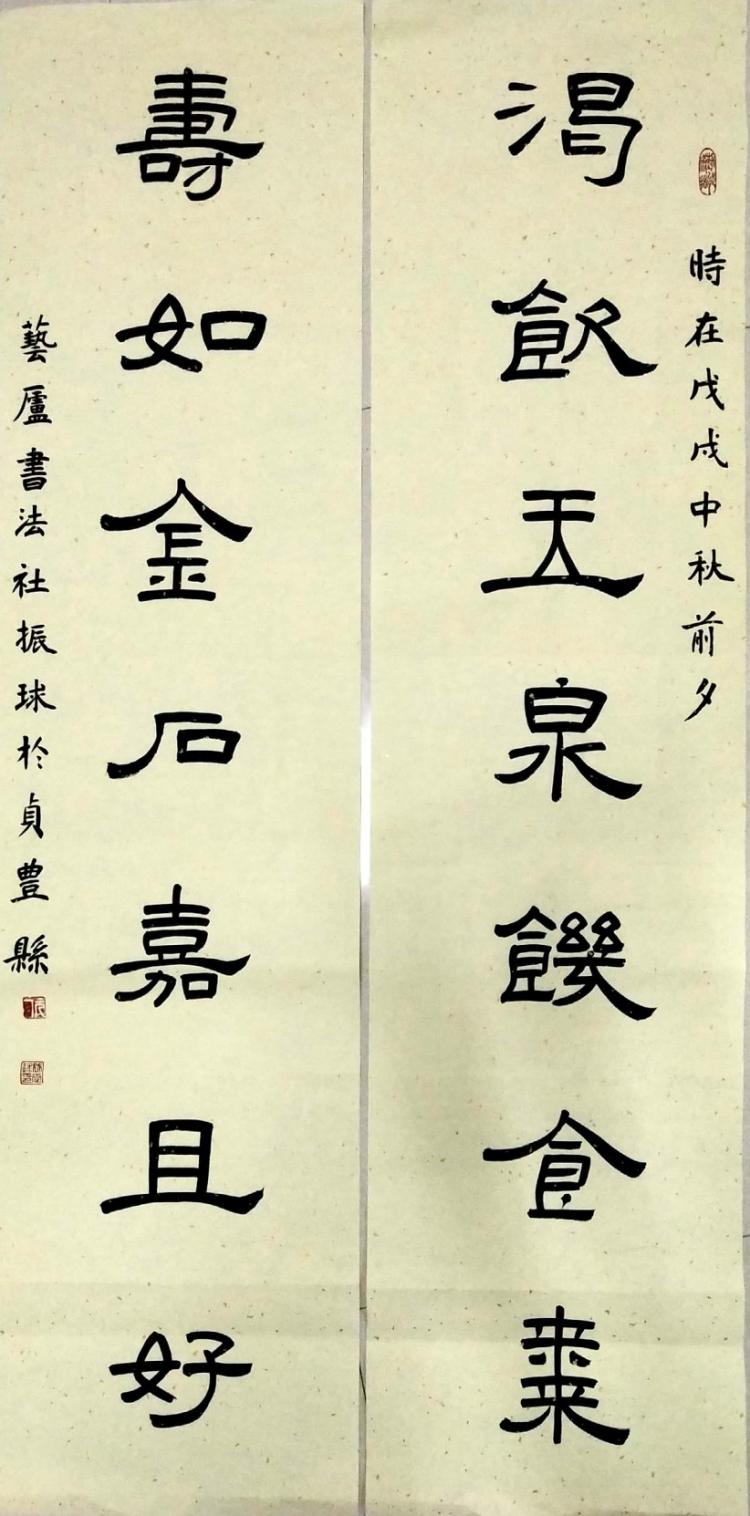 時在戊戌中秋前夕
渴飲玉泉饑食棗
壽如金石嘉且好
藝廬書法社振球於貞豊縣